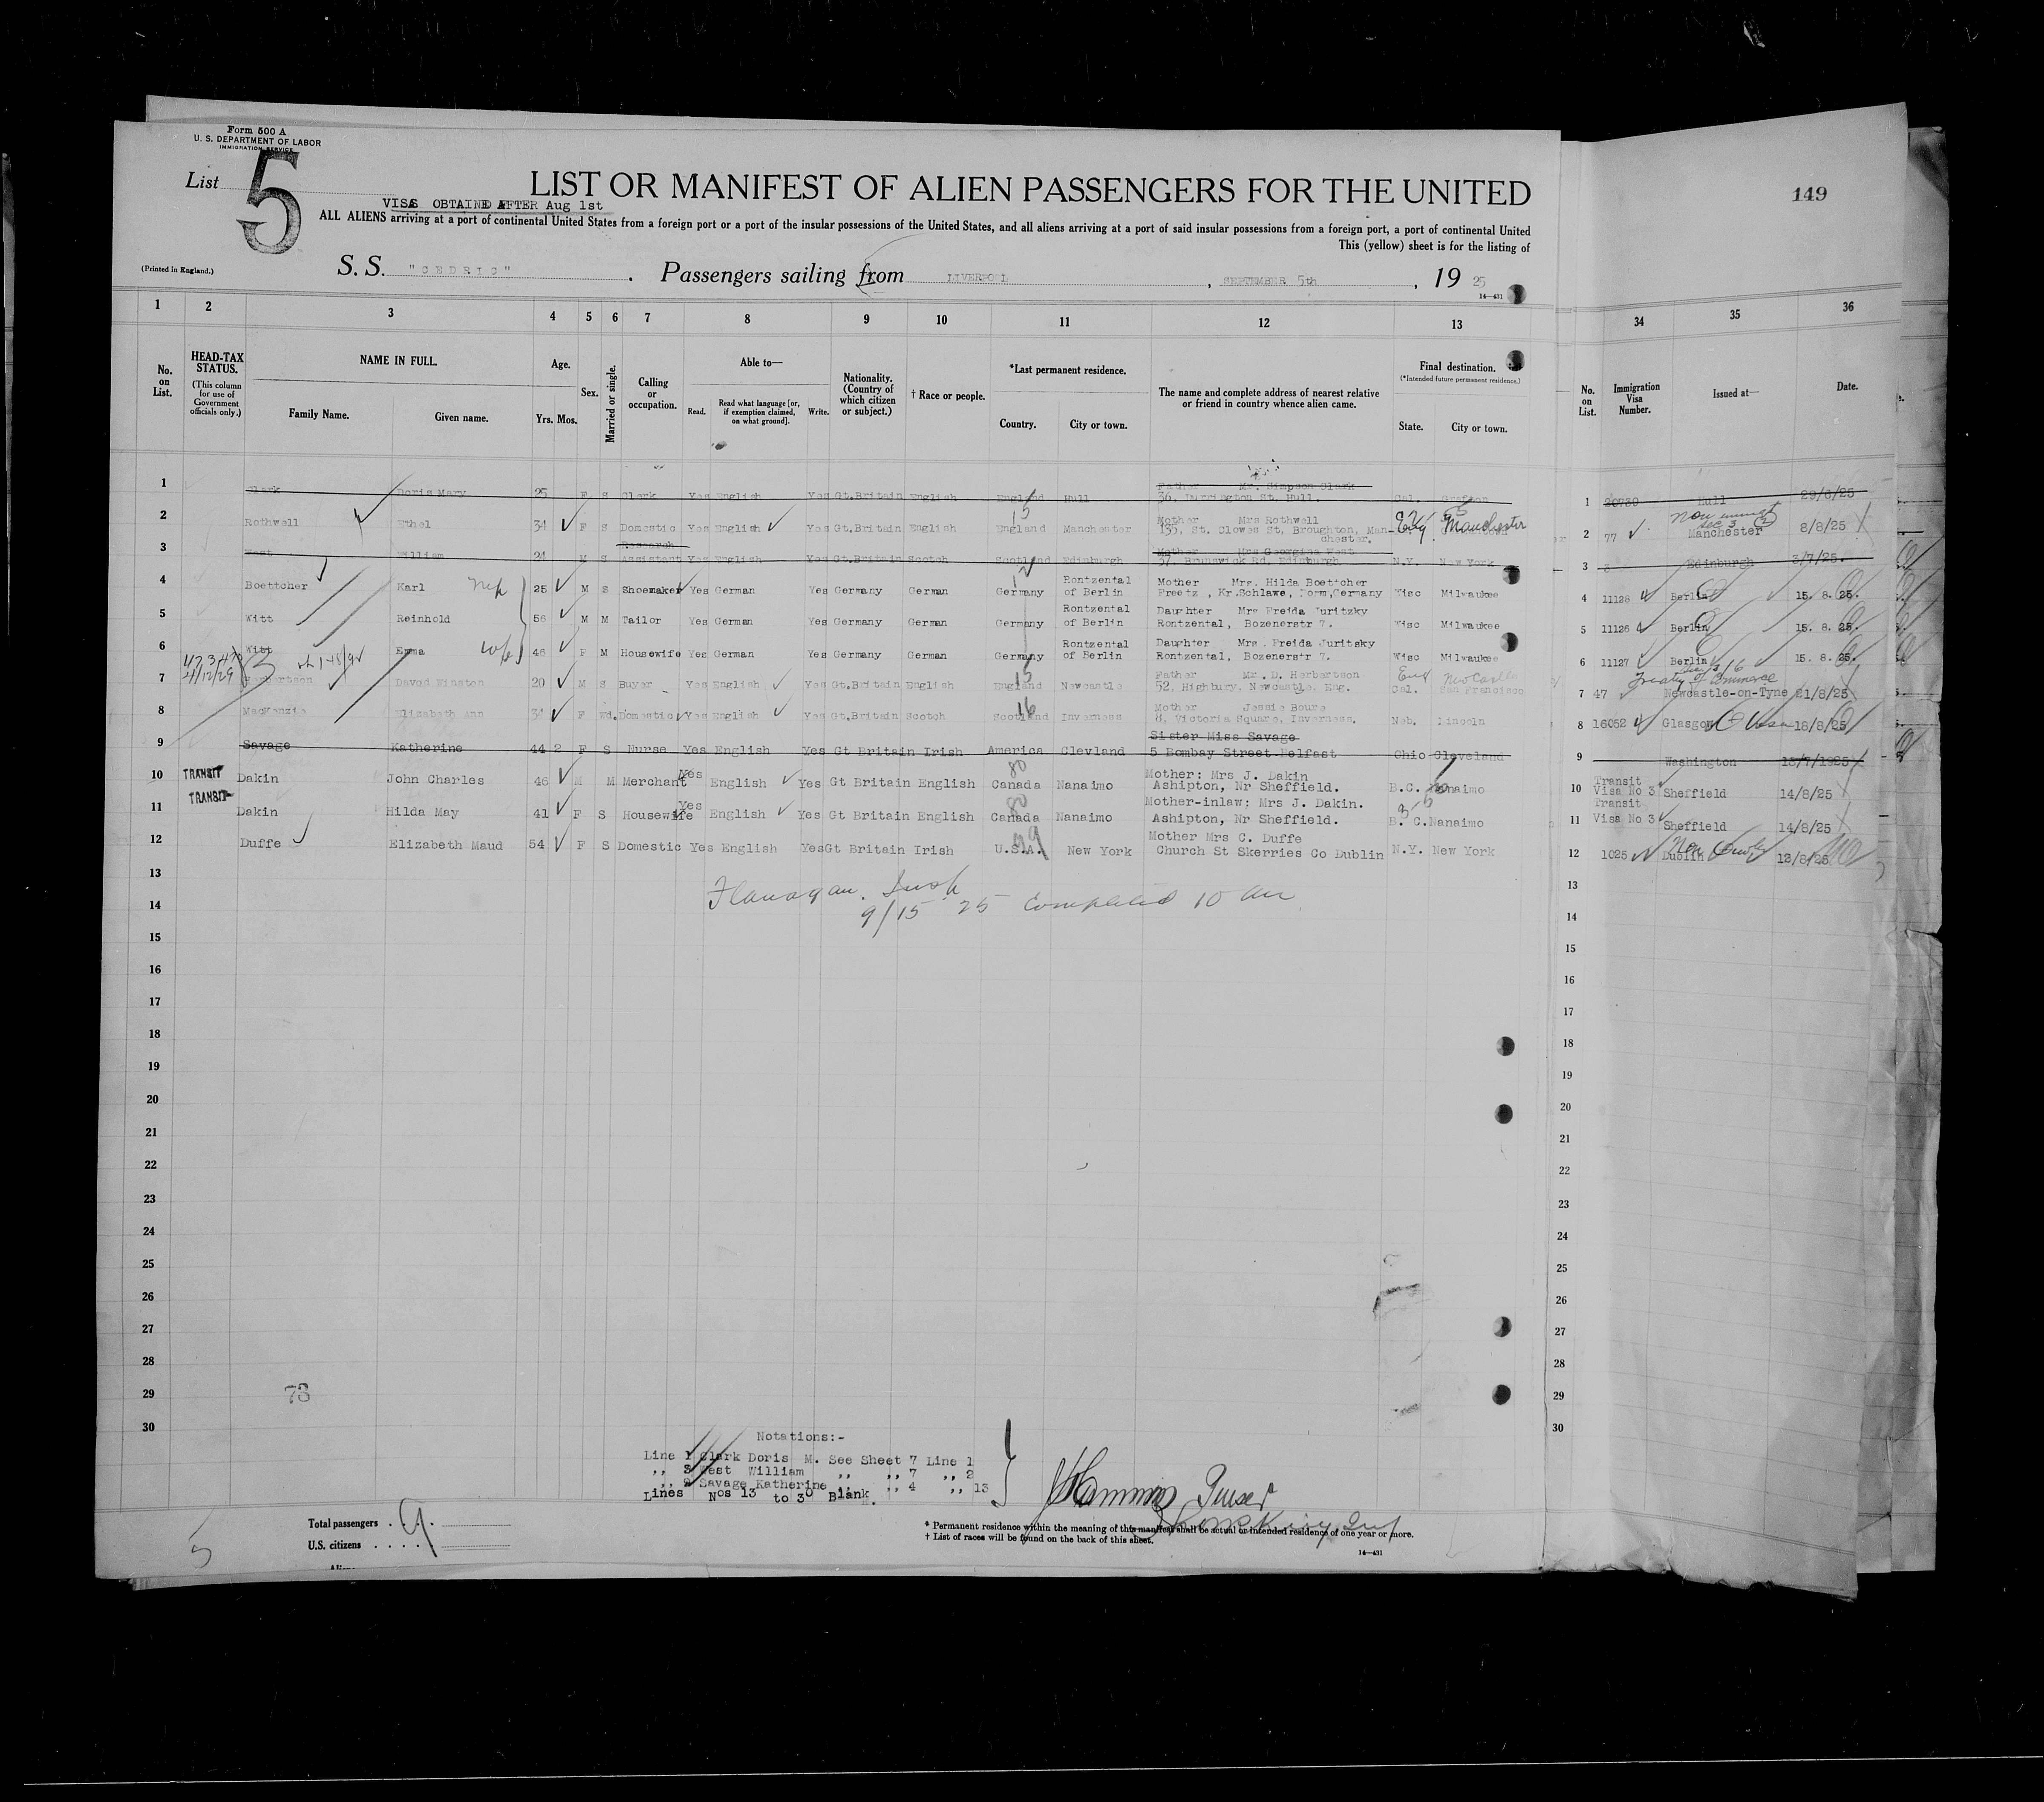 Form 500 A
U. S. DEPARTMENT OF LABOR
IMMIGRATION SERVICE
List 5
LIST OR MANIFEST OF ALIEN PASSENGERS FOR THE UNITED
149
VISAS OBTAINED AFTER Aug 1st
ALL ALIENS arriving at a port of continental United States from a foreign port or a port of the insular possessions of the United States, and all aliens arriving at a port of said insular possessions from a foreign port, a port of continental United
This (yellow) sheet is for the listing of
(Printed in England.)
S. S. "CEDRIC" . Passengers sailing from LIVERPOOL , SEPTEMBER 5th , 19 25
14—431
1 2 3 4 5 6 7 8 9 10 11 12 13 34 35 36
No. on List.
HEAD-TAX STATUS.
(This column for use of Government officials only.)
NAME IN FULL.
Family Name. Given name.
Age.
Yrs. Mos.
Sex.
Married or single.
Calling or occupation.
Able to—
Read. Read what language [or, if exemption claimed, on what ground]. Write.
Nationality. (Country of which citizen or subject.)
† Race or people.
*Last permanent residence.
Country. City or town.
The name and complete address of nearest relative or friend in country whence alien came.
Final destination.
(*Intended future permanent residence.)
State. City or town.
No. on List.
Immigration Visa Number.
Issued at—
Date.
Father Mr. Simpson Clark
1 Clark Doris Mary 25 F S Clark Yes English Yes Gt.Britain English England Hull 36, Darrington St. Hull. Cal. Grafton 1 20730 Hull 29/6/25
15
Mother Mrs Rothwell
2 Rothwell Ethel 34 F S Domestic Yes English Yes Gt.Britain English England Manchester 135, St. Clowes St, Broughton, Manchester. Eng. Manchester 2 77 Manchester 8/8/25
Non immgt Sec 3 (2)
Research Mother Mrs Georgina West
3 West William 24 M S Assistant Yes English Yes Gt.Britain Scotch Scotland Edinburgh 57, Brunswick Rd, Edinburgh N.Y. New York 3 Edinburgh 3/7/25.
Rontzental Mother Mrs. Hilda Boettcher
4 Boettcher Karl Nep 25 M S Shoemaker Yes German Yes Germany German Germany of Berlin Freetz , Kr.Schlawe, Pomm,Germany Wisc Milwaukee 4 11128 Berlin 15. 8. 25.
Rontzental Daurhter Mrs Freida Juritzky
5 Witt Reinhold 56 M M Tailor Yes German Yes Germany German Germany of Berlin Rontzental, Bozenerstr 7. Wisc Milwaukee 5 11126 Berlin 15. 8. 25.
Rontzental Daughter Mrs. Freida Juritsky
6 Witt Emma Wife 46 F M Housewife Yes German Yes Germany German Germany of Berlin Rontzental, Bozenerstr 7. Wisc Milwaukee 6 11127 Berlin 15. 8. 25.
15
Father Mr. D. Herbertson Eng Newcastle
Treaty of Commerce
7 Herbertson Davod Winston 20 M S Buyer Yes English Yes Gt.Britain English England Newcastle 52, Highbury, Newcastle. Eng. Cal. San Francisco 7 47 Newcastle-on-Tyne 21/8/25
16
Mother Jessie Boure
8 MacKenzie Elizabeth Ann 34 F Wd. Domestic Yes English Yes Gt.Britain Scotch Scotland Inverness 8, Victoria Square, Inverness. Neb. Lincoln 8 16052 Glasgow 18/8/25
Sister Miss Savage
9 Savage Katherine 44 2 F S Nurse Yes English Yes Gt Britain Irish America Clevland 5 Bombay Street Belfast Ohio Cleveland 9 Washington 18/7/1925
80
Mother: Mrs J. Dakin
10 TRANSIT Dakin John Charles 46 M M Merchant Yes English Yes Gt Britain English Canada Nanaimo Ashipton, Nr Sheffield. B.C. Nanaimo 10 Transit Visa No 3 Sheffield 14/8/25
80
Mother-inlaw; Mrs J. Dakin.
11 TRANSIT Dakin Hilda May 41 F S Housewife Yes English Yes Gt Britain English Canada Nanaimo Ashipton, Nr Sheffield. B. C. Nanaimo 11 Transit Visa No 3 Sheffield 14/8/25
99
Mother Mrs C. Duffe
12 Duffe Elizabeth Maud 54 F S Domestic Yes English Yes Gt Britain Irish U.S.A. New York Church St Skerries Co Dublin N.Y. New York 12 1025 Dublin 12/8/25
13 13
Flanagan. Insp
14 9/15 25 Completed 10 am 14
15 15
16 16
17 17
18 18
19 19
20 20
21 21
22 22
23 23
24 24
25 25
26 26
27 27
28 28
29 29
73
30 30
Notations:-
Line 1 Clark Doris M. See Sheet 7 Line 1
,, 3 West William ,, ,, 7 ,, 2
,, 9 Savage Katherine ,, ,, 4 ,, 13
Lines Nos 13 to 30 Blank.
Purser
Total passengers . . 9
U.S. citizens . . . .
* Permanent residence within the meaning of this manifest shall be actual or intended residence of one year or more.
† List of races will be found on the back of this sheet.
14—431